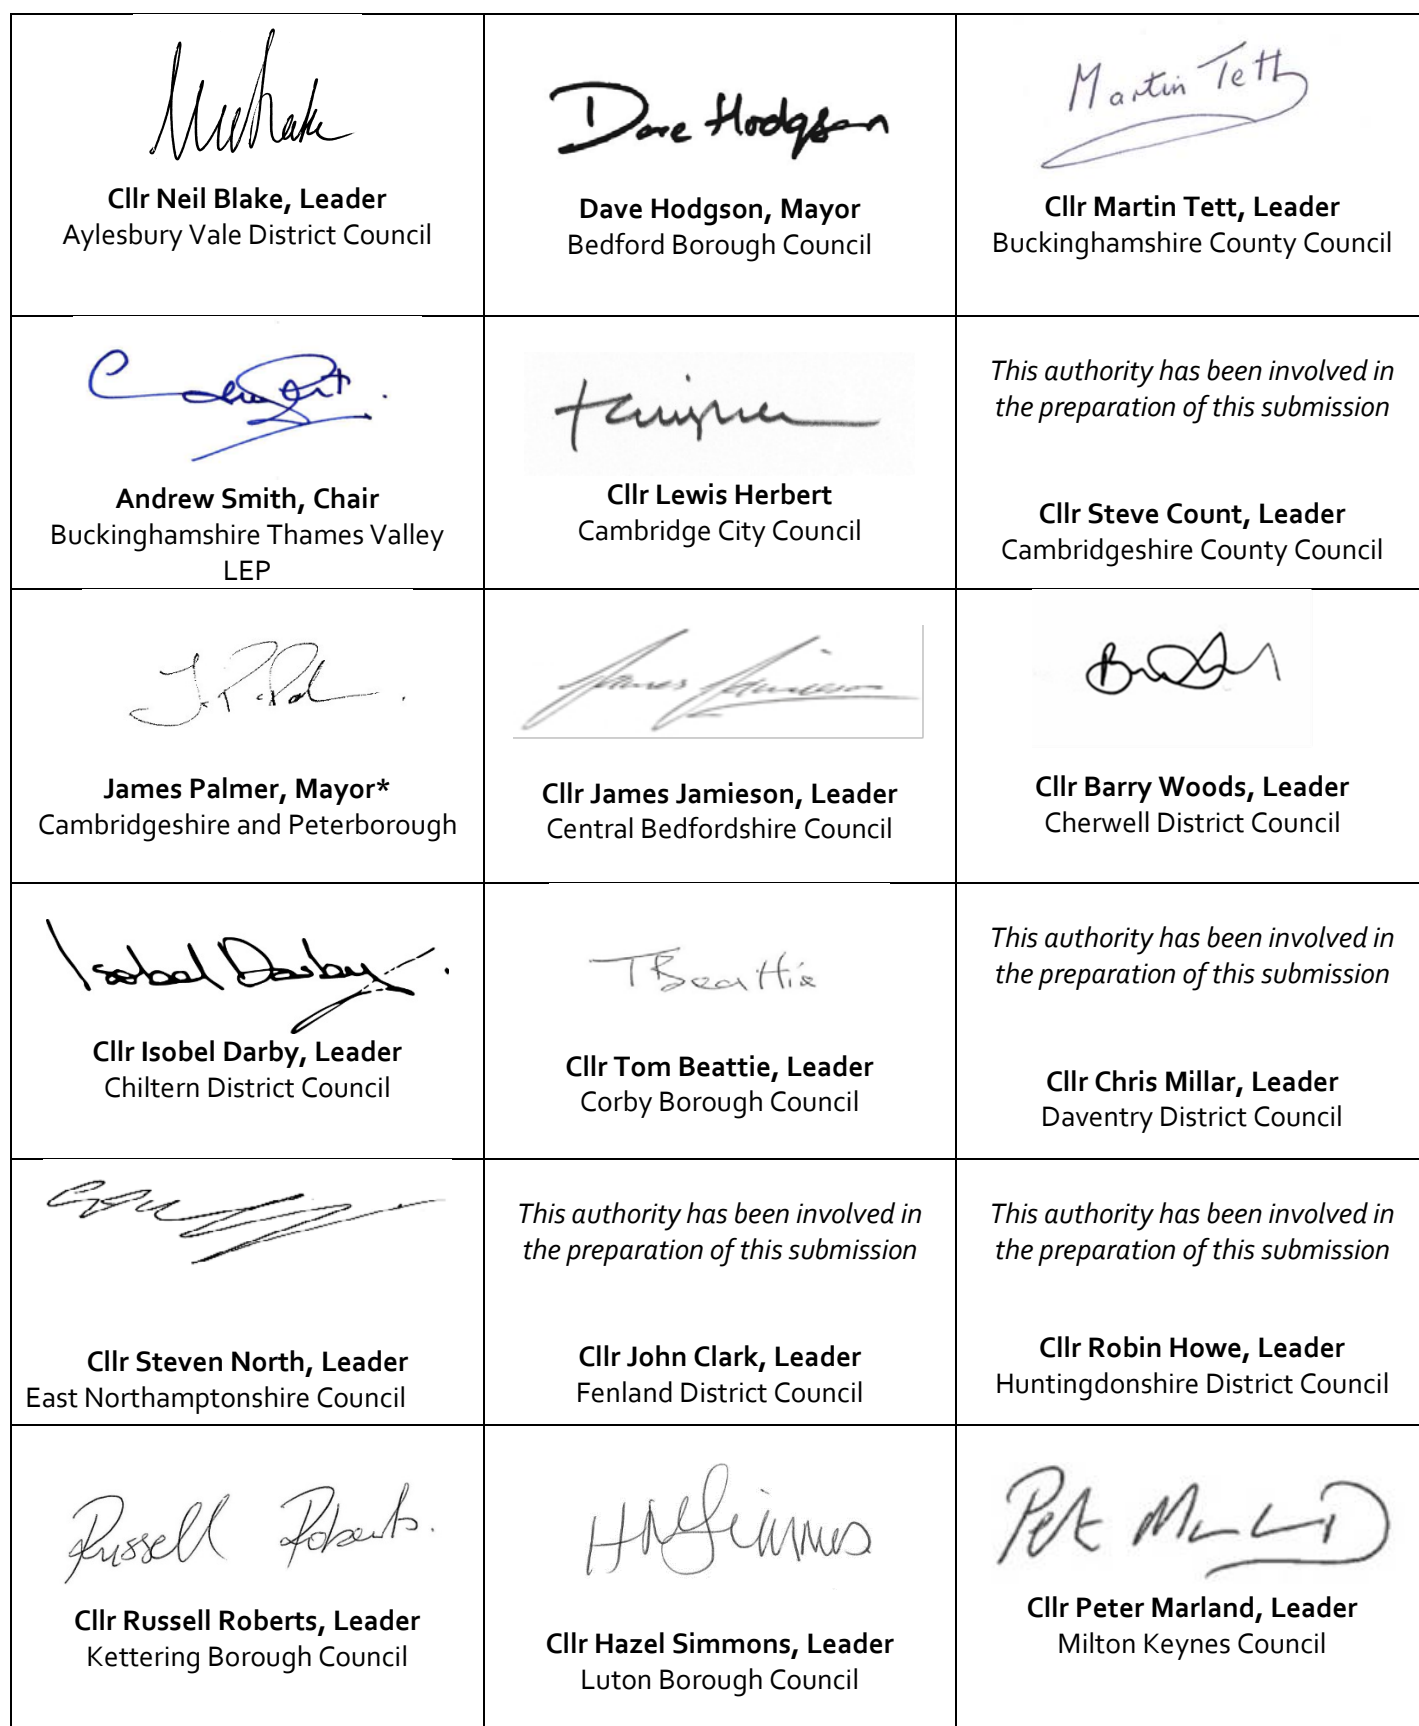 Cllr Neil Blake, Leader
Aylesbury Vale District Council
Dave Hodgson
Dave Hodgson, Mayor
Bedford Borough Council
Martin Tett
Cllr Martin Tett, Leader
Buckinghamshire County Council
Andrew Smith, Chair
Buckinghamshire Thames Valley
LEP
Cllr Lewis Herbert
Cambridge City Council
This authority has been involved in
the preparation of this submission
Cllr Steve Count, Leader
Cambridgeshire County Council
James Palmer, Mayor*
Cambridgeshire and Peterborough
James Jamieson
Cllr James Jamieson, Leader
Central Bedfordshire Council
Cllr Barry Woods, Leader
Cherwell District Council
Isobel Darby
Cllr Isobel Darby, Leader
Chiltern District Council
T Beattie
Cllr Tom Beattie, Leader
Corby Borough Council
This authority has been involved in
the preparation of this submission
Cllr Chris Millar, Leader
Daventry District Council
Cllr Steven North, Leader
East Northamptonshire Council
This authority has been involved in
the preparation of this submission
Cllr John Clark, Leader
Fenland District Council
This authority has been involved in
the preparation of this submission
Cllr Robin Howe, Leader
Huntingdonshire District Council
Russell Roberts.
Cllr Russell Roberts, Leader
Kettering Borough Council
Cllr Hazel Simmons, Leader
Luton Borough Council
Cllr Peter Marland, Leader
Milton Keynes Council